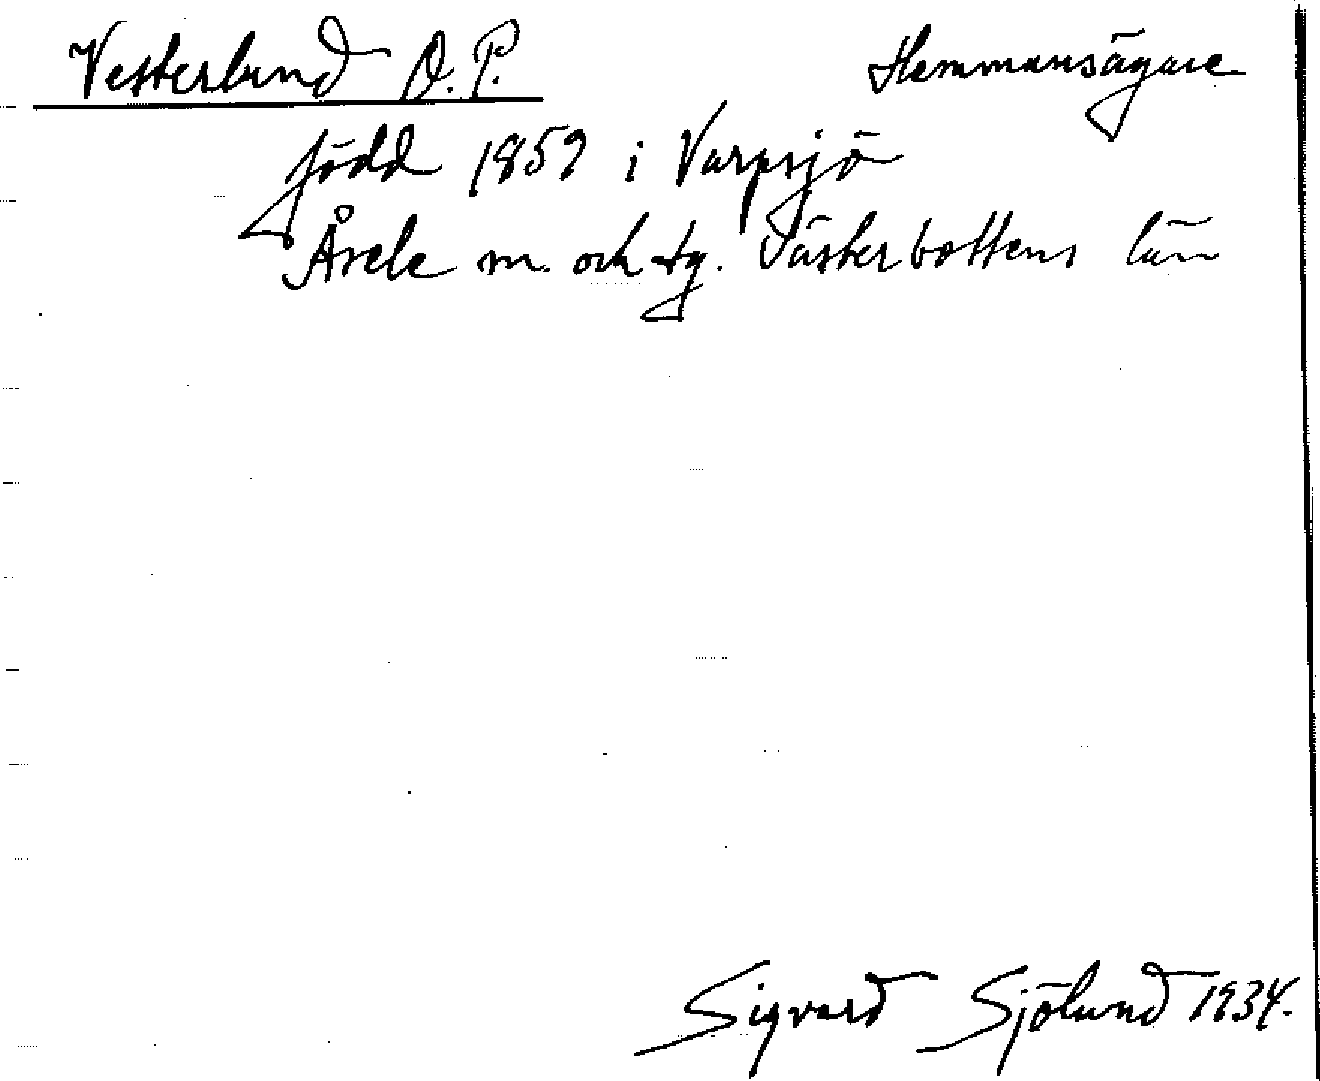 Vesterlund O. P. Hemmansägare
född 1859 i Varpsjö
Åsele sn. och tg. Västerbottens län
Sigvard Sjölund 1934.